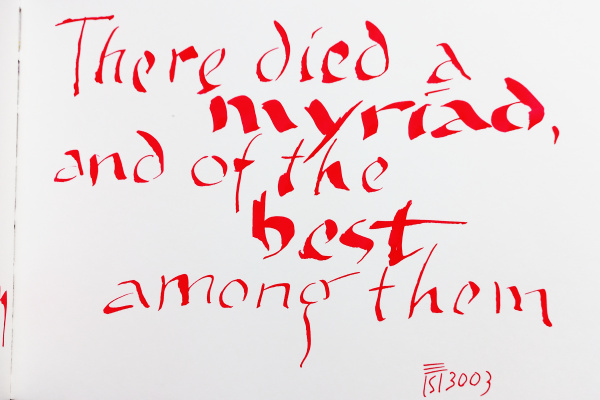 There died a
myriad,
and of the
best
among them
3003